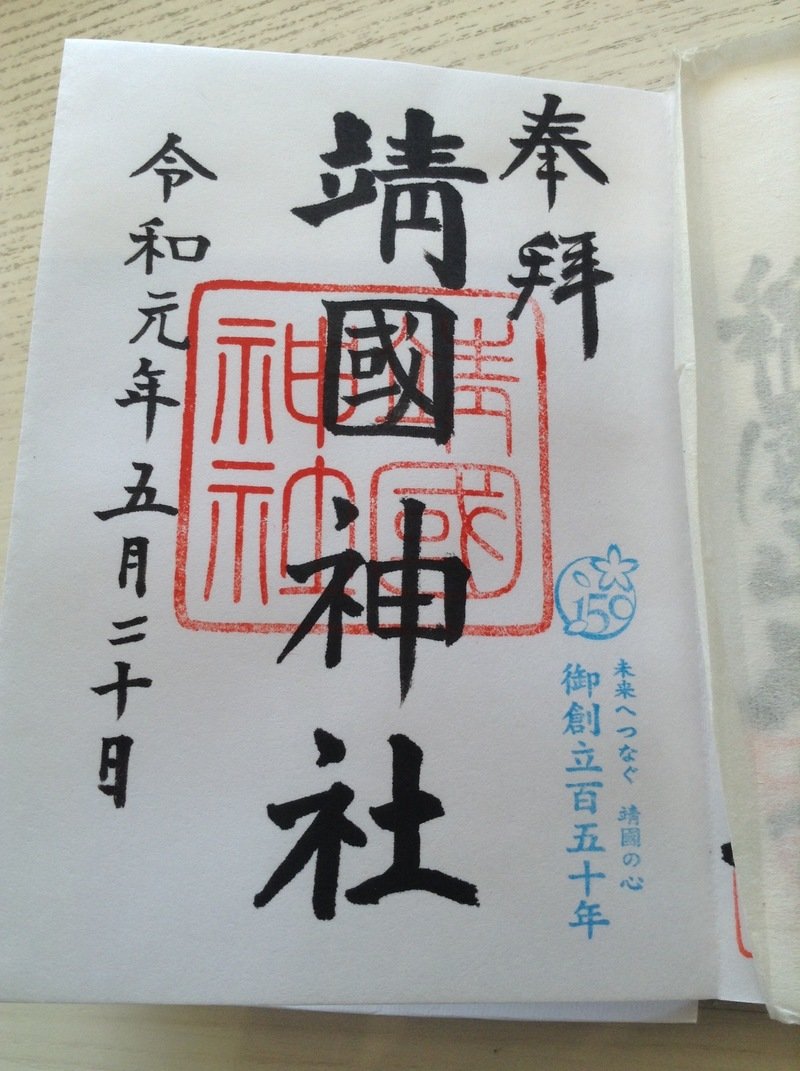 奉拜
靖國神社
靖國神社
令和元年五月二十日
150
未来へつなぐ 靖國の心
御創立百五十年